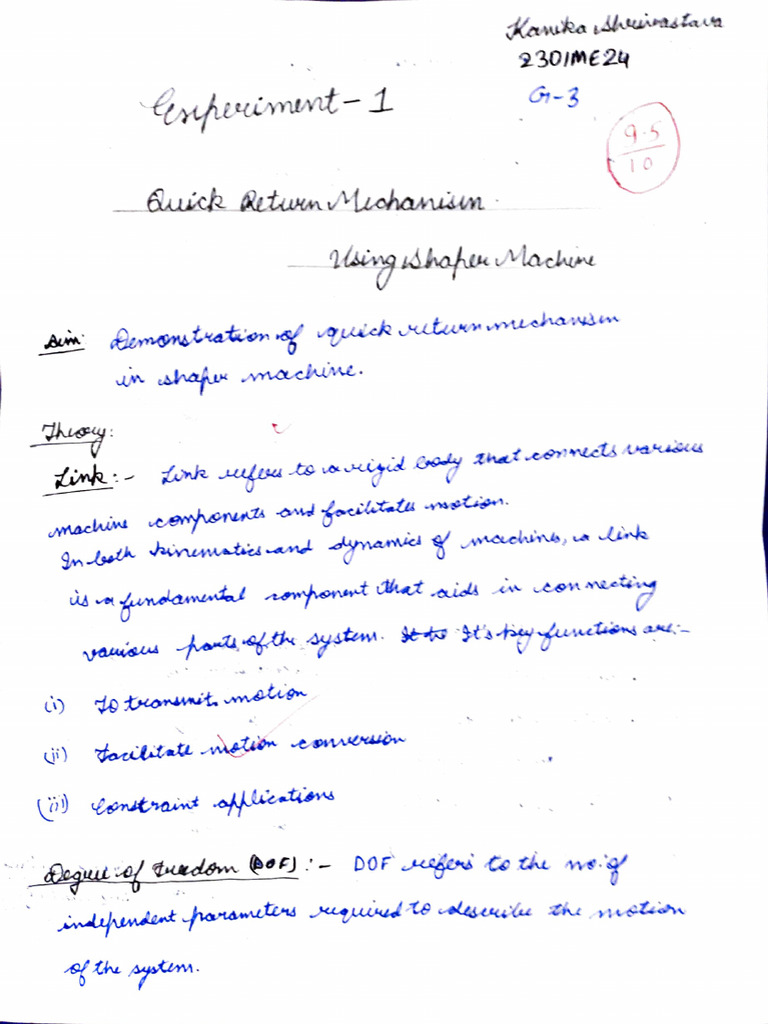 Kanika Shrivastava
2301ME24
G-3
Experiment-1
9.5
10
Quick Return Mechanism
Using Shaper Machine
Aim: Demonstration of quick return mechanism
in shaper machine.
Theory:
Link:- Link refers to a rigid body that connects various
machine components and facilitates motion.
In both kinematics and dynamics of machines, a link
is a fundamental component that aids in connecting
various parts of the system. It's key functions are:-
(i) To transmit motion
(ii) Facilitate motion conversion
(iii) Constraint applications
Degree of freedom (DOF):- DOF refers to the no. of
independent parameters required to describe the motion
of the system.